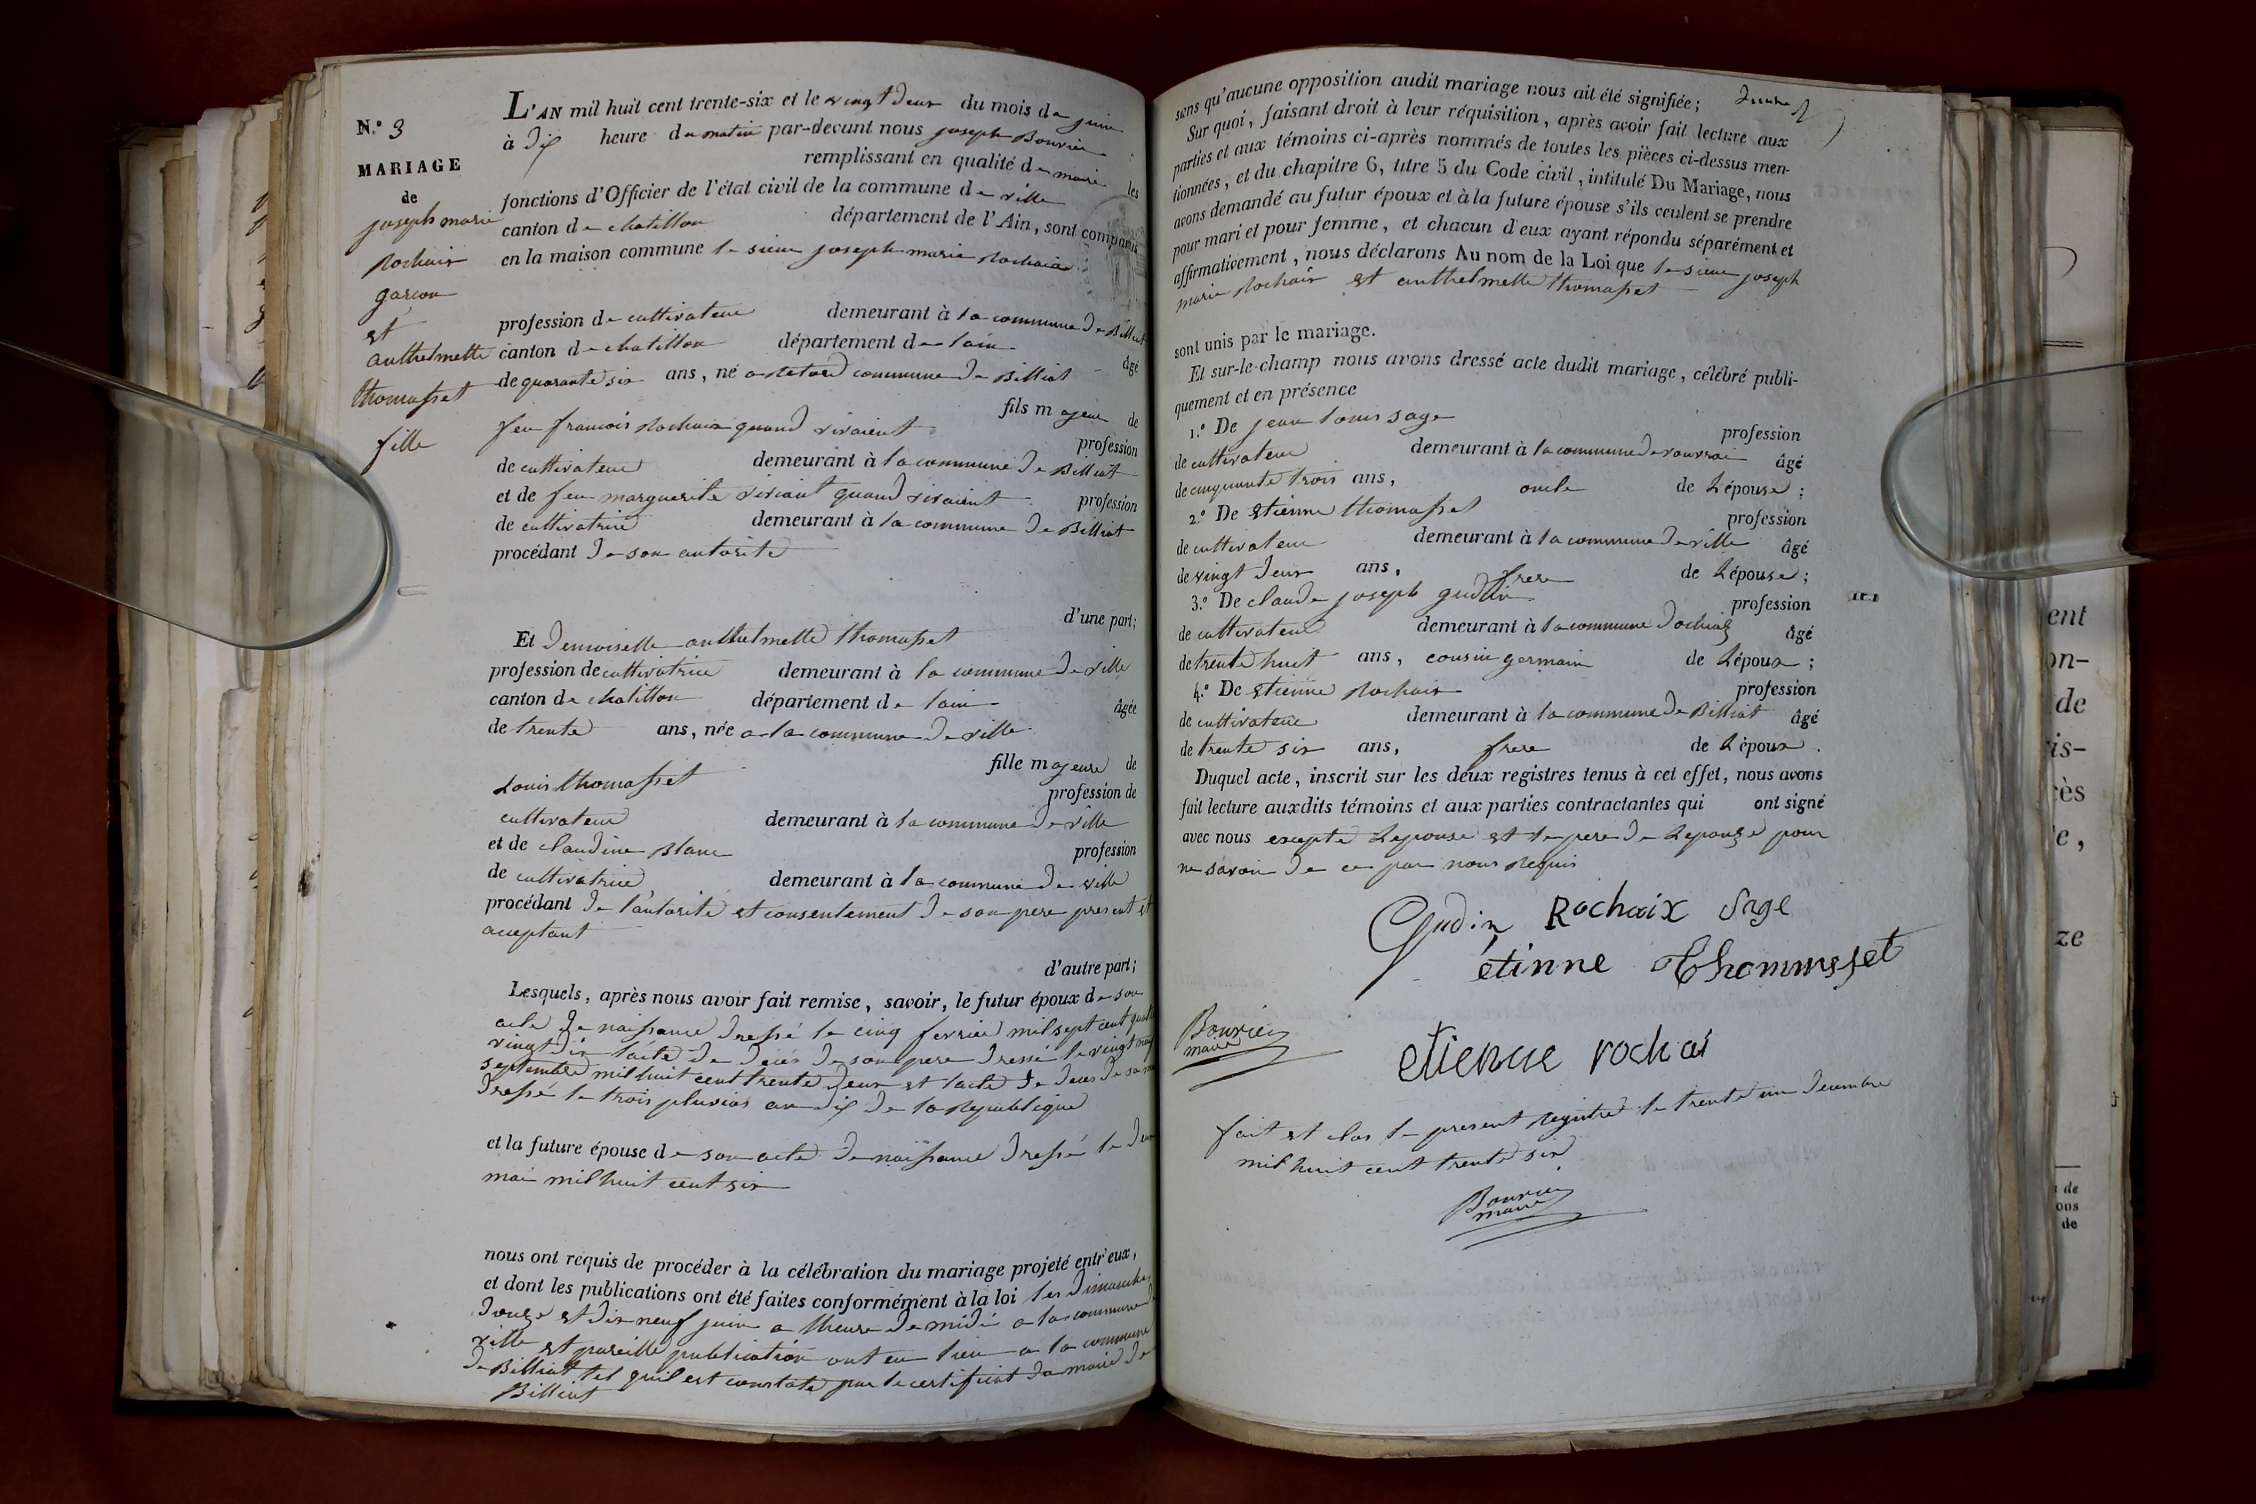 N.º 3
MARIAGE
de
joseph marie
Rochaix
garcon
et
anthelmette
thomasset
fille
L'AN mil huit cent trente-six et le vingt deux du mois de juin
à dix heure du matin par-devant nous joseph Bouvier
remplissant en qualité de maire les
fonctions d'Officier de l'état civil de la commune de ville
canton de chatillon département de l'Ain, sont comparus
en la maison commune le sieur joseph marie Rochaix
profession de cultivateur demeurant à la commune de Billiat
canton de chatillon département de lain âgé
de quarante six ans, né a commune de Billiat
fils majeur de
feu francois Rochaix quand vivaient profession
de cultivateur demeurant à la commune de Billiat
et de feu marguerite quand vivaient profession
de cultivatrice demeurant à la commune de Billiat
procédant de son autorité
d'une part;
Et demoiselle anthelmette thomasset
profession de cultivatrice demeurant à la commune de ville
canton de chatillon département de lain âgée
de trente ans, née a la commune de ville
fille majeure de
Louis thomasset profession de
cultivateur demeurant à la commune de ville
et de claudine Blanc profession
de cultivatrice demeurant à la commune de ville
procédant de l'autorité et consentement de son pere present et
acceptant
d'autre part;
Lesquels, après nous avoir fait remise, savoir, le futur époux de son
acte de naissance dressé le cinq fevrier mil sept cent quatre
vingt dix lacte de deces de son pere dressé le vingt neuf
septembre mil huit cent trente deux et lacte de deces de sa mere
dressé le trois pluvios an dix de la Republique
et la future épouse de son acte de naissance dressé le deux
mai mil huit cent six
nous ont requis de procéder à la célébration du mariage projeté entr'eux,
et dont les publications ont été faites conformément à la loi les dimanches
douze et dix neuf juin a lheure de midi a la commune de
ville et pareille publication ont eu lieu a la commune
de Billiat tel quil est constaté par le certificat du maire de
Billiat
sans qu'aucune opposition audit mariage nous ait été signifiée;
Sur quoi, faisant droit à leur réquisition, après avoir fait lecture aux
parties et aux témoins ci-après nommés de toutes les pièces ci-dessus men-
tionnées, et du chapitre 6, titre 5 du Code civil, intitulé Du Mariage, nous
avons demandé au futur époux et à la future épouse s'ils veulent se prendre
pour mari et pour femme, et chacun d'eux ayant répondu séparément et
affirmativement, nous déclarons Au nom de la Loi que le sieur joseph
marie Rochaix et anthelmette thomasset
sont unis par le mariage.
Et sur-le-champ nous avons dressé acte dudit mariage, célébré publi-
quement et en présence
1.º De jean louis sage profession
de cultivateur demeurant à la commune de âgé
de cinquante trois ans, oncle de Lépouse;
2.º De etienne thomasset profession
de cultivateur demeurant à la commune de ville âgé
de vingt deux ans, frere de Lépouse;
3.º De claude joseph gudin profession
de cultivateur demeurant à la commune dochiaz âgé
de trente huit ans, cousin germain de Lépoux;
4.º De etienne Rochaix profession
de cultivateur demeurant à la commune de Billiat âgé
de trente six ans, frere de Lépoux.
Duquel acte, inscrit sur les deux registres tenus à cet effet, nous avons
fait lecture auxdits témoins et aux parties contractantes qui ont signé
avec nous excepté Lepouse et le pere de Lepouse pour
ne savoir de ce par nous Requis
Gudin Rochaix Sage
étinne Thommsset
Bouvier
maire
etienne rochai
fait et clos le present Registre le trente un decembre
mil huit cent trente six
Bouvier
maire